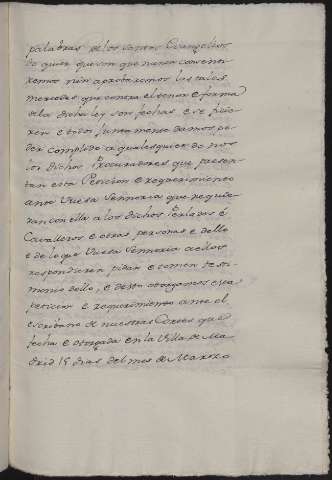 palabras de los santos Evangelios
do quier que son que nunca consenti-
remos nin aprobaremos las tales
mercedes que contra el tenor e forma
de la dicha ley son fechas e se ficie-
ren e todos juntamente damos po-
der complido a qualesquier de nos
los dichos Procuradores que presen-
tan esta Peticion e requerimiento
ante Vuesa Señoria que requie-
ran con ella a los dichos Perlados é
Cavalleros e otras personas e dello
e de lo que Vuesa Señoria a ellos
respondieren pidan e tomen testi-
monio dello, e desto otorgamos esta
peticion e requirimiento ante el
escribano de nuestras Cortes que
fecha e otorgada en la Villa de Ma-
drid 15 dias del mes de Marzo